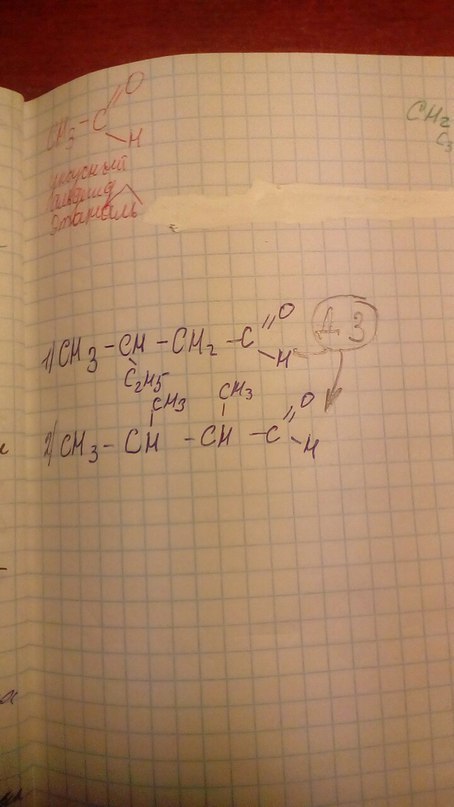 CH3-C//O
\H
уксусный
альдегид
Этаналь
CH2
C3
1) CH3-CH-CH2-C//O
\H
C2H5
ДЗ
CH3 CH3
2) CH3-CH-CH-C//O
\H